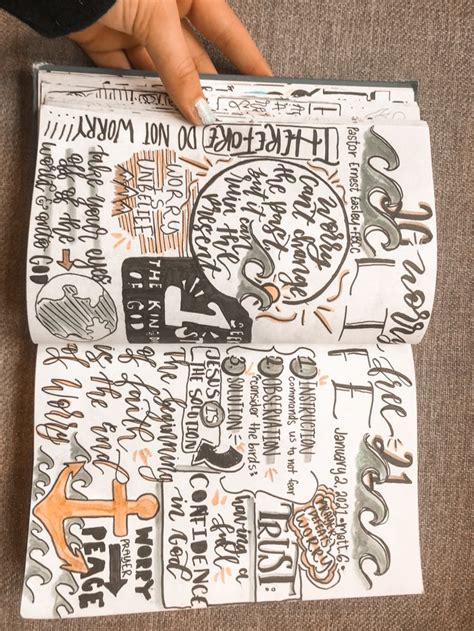 worry
free
LI
FE
Pastor Ernest Easley • FBCC
January 2, 2021 • Matt. 6
[THEREFORE] DO NOT WORRY
worry
can't change
the past
but it can
ruin the
present
WORRY
IS
UNBELIEF
take your eyes
off of the →
world & onto GOD
SEEK
1ST
THE KINGDOM
OF GOD
① INSTRUCTION
commands us to not fear
② OBSERVATION
consider the birds:
③ SOLUTION
JESUS IS
THE SOLUTION
WORRY
TRUST:
having a
full
CONFIDENCE
in God
The beginning
of faith
is the End
of Worry
WORRY
PRAYER
PEACE